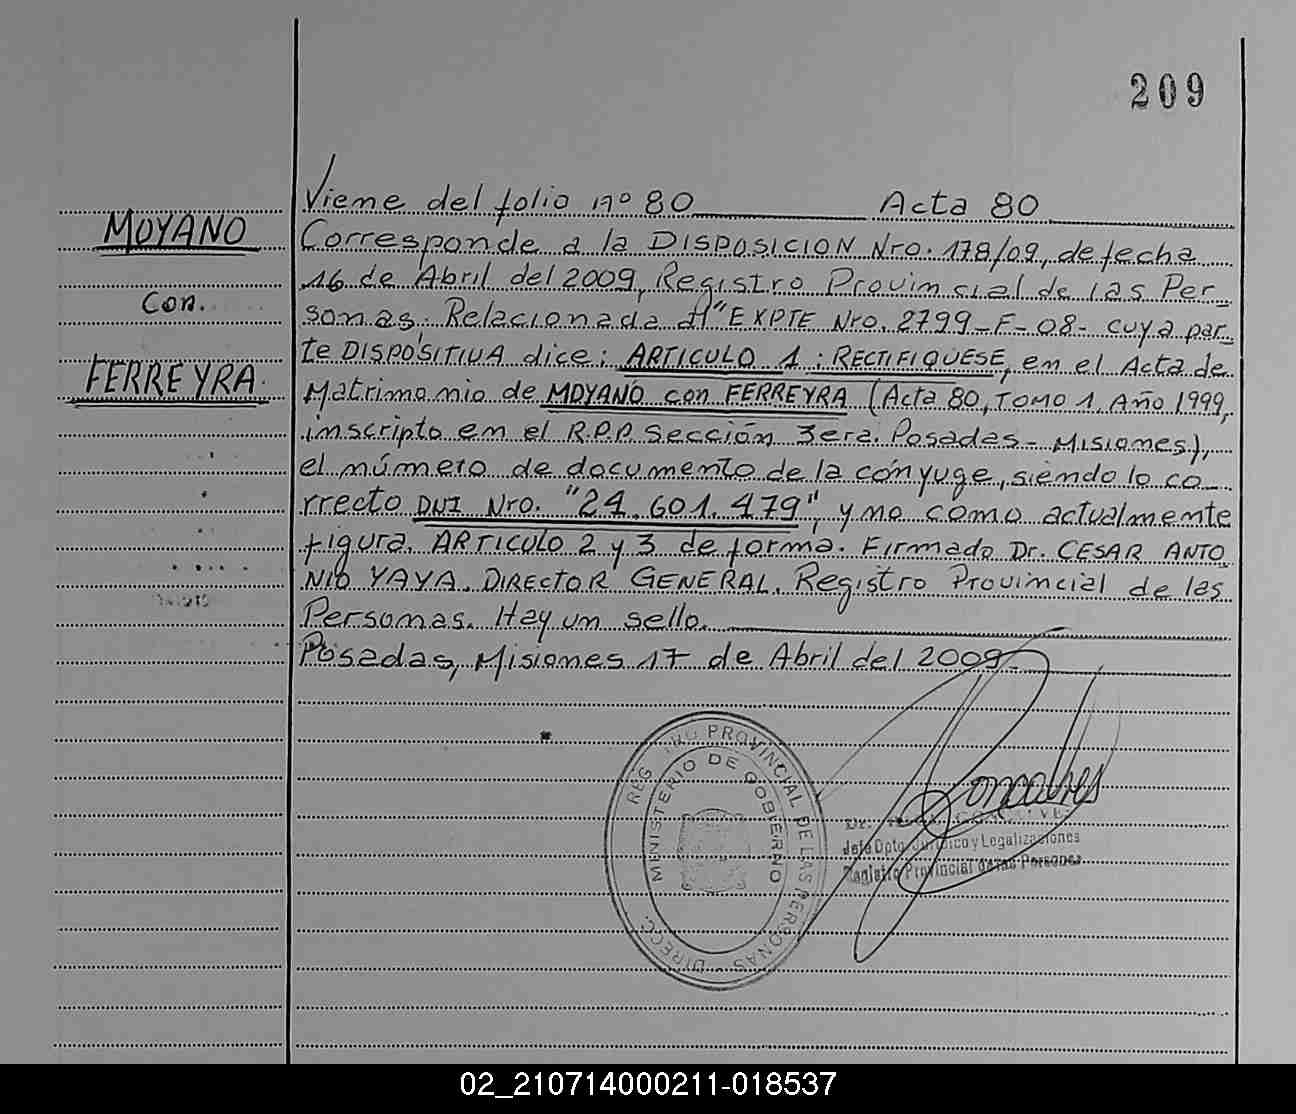 209
Viene del folio nº 80 Acta 80
MOYANO
Con.
FERREYRA.
Corresponde a la DISPOSICION Nro. 178/09, de fecha
16 de Abril del 2009, Registro Provincial de las Per_
sonas. Relacionada al "EXPTE Nro. 2799-F-08- cuya par_
te DISPOSITIVA dice: ARTICULO 1: RECTIFIQUESE, en el Acta de
Matrimonio de MOYANO con FERREYRA (Acta 80, TOMO 1, Año 1999,
inscripto en el R.P.P. Sección 3era. Posadas - Misiones),
el número de documento de la cónyuge, siendo lo co_
rrecto DNI Nro. "24.601.479", y no como actualmente
figura. ARTICULO 2 y 3 de forma. Firmado Dr. CESAR ANTO
NIO YAYA. DIRECTOR GENERAL. Registro Provincial de las
Personas. Hay un sello.
Posadas, Misiones 17 de Abril del 2009.
DIRECC. REG PROVINCIAL DE LAS PERSONAS
MINISTERIO DE GOBIERNO
Dr.
Jefe Dpto. Jurídico y Legalizaciones
Registro Provincial de las Personas
02_210714000211-018537